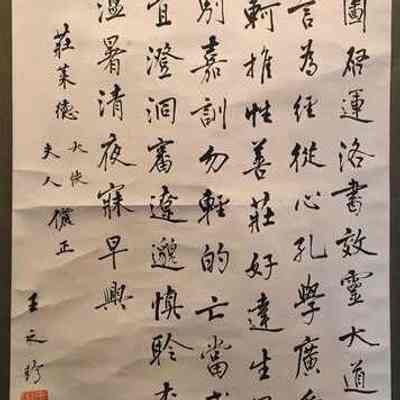 圖啓運洛書效靈大道
言為經從心孔學廣
軻推性善莊好達生
別嘉訓勿輕的亡當
宜澄洞審遼邈慎聆
溫暑清夜寐早興
莊萊德大使
夫人儷正
王之